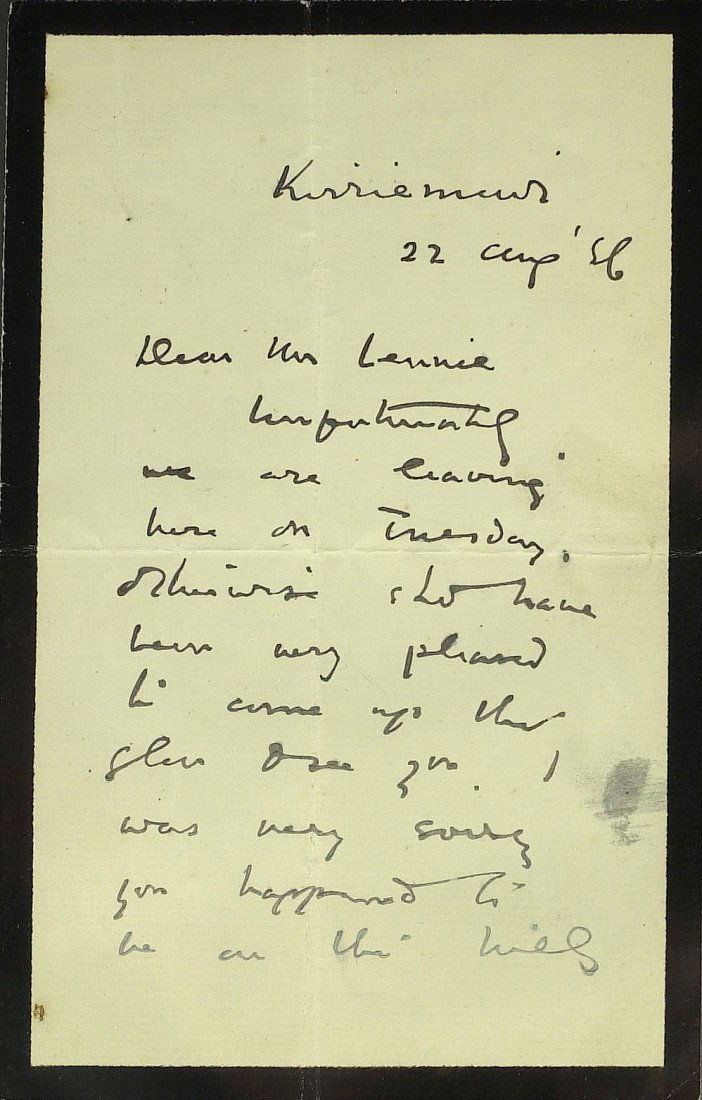 Kirriemuir
22 Aug '96
Dear Mr Lennie
Unfortunately
we are leaving
here on Tuesday,
otherwise shd have
been very pleased
to come up the
glen & see you. I
was very sorry
you happened to
be on the hills